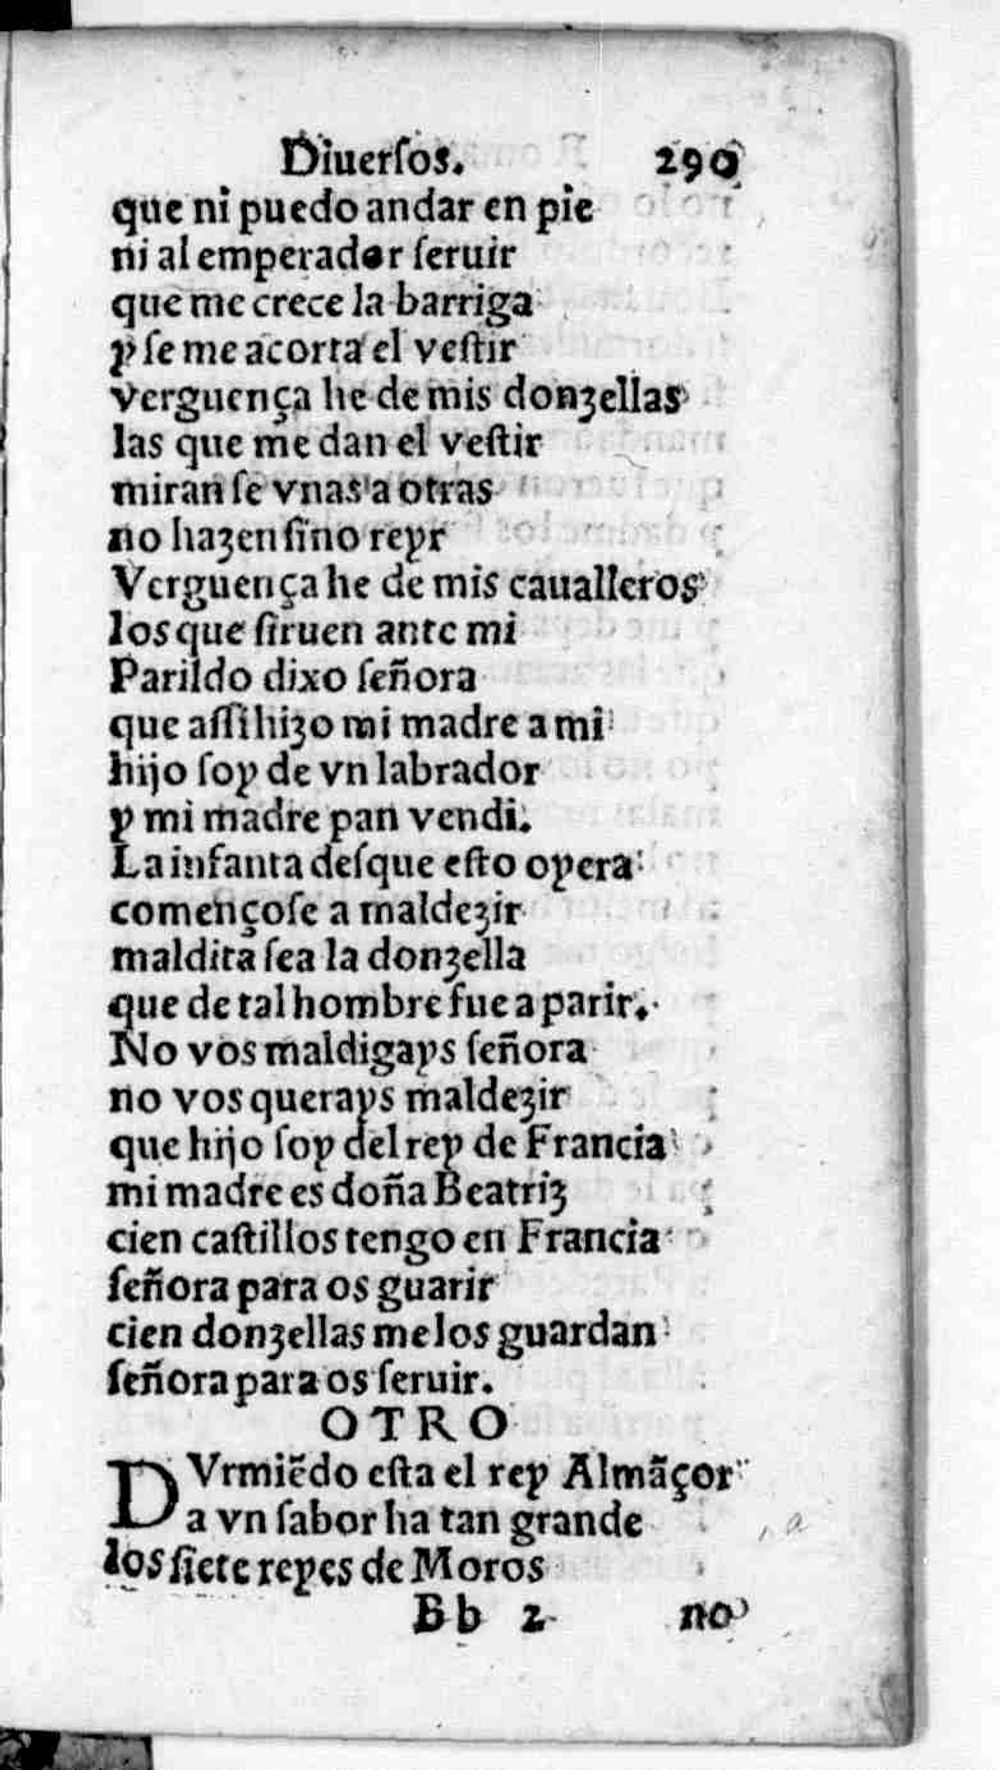 Diuerſos. 290
que ni puedo andar en pie
ni al emperador ſeruir
que me crece la barriga
y ſe me acorta el veſtir
verguença he de mis donzellas
las que me dan el veſtir
miran ſe vnas a otras
no hazen ſino reyr
Verguença he de mis caualleros
los que ſiruen ante mi
Parildo dixo ſeñora
que aſſi hizo mi madre a mi
hijo ſoy de vn labrador
y mi madre pan vendi.
La infanta deſque eſto oyera
començoſe a maldezir
maldita ſea la donzella
que de tal hombre fue a parir.
No vos maldigays ſeñora
no vos querays maldezir
que hijo ſoy del rey de Francia
mi madre es doña Beatriz
cien caſtillos tengo en Francia
ſeñora para os guarir
cien donzellas me los guardan
ſeñora para os ſeruir.
OTRO
DVrmiẽdo eſta el rey Almãçor
a vn ſabor ha tan grande
los ſiete reyes de Moros
Bb 2 no